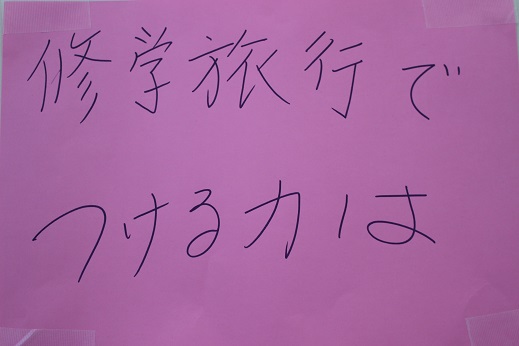 修学旅行で
つける力は